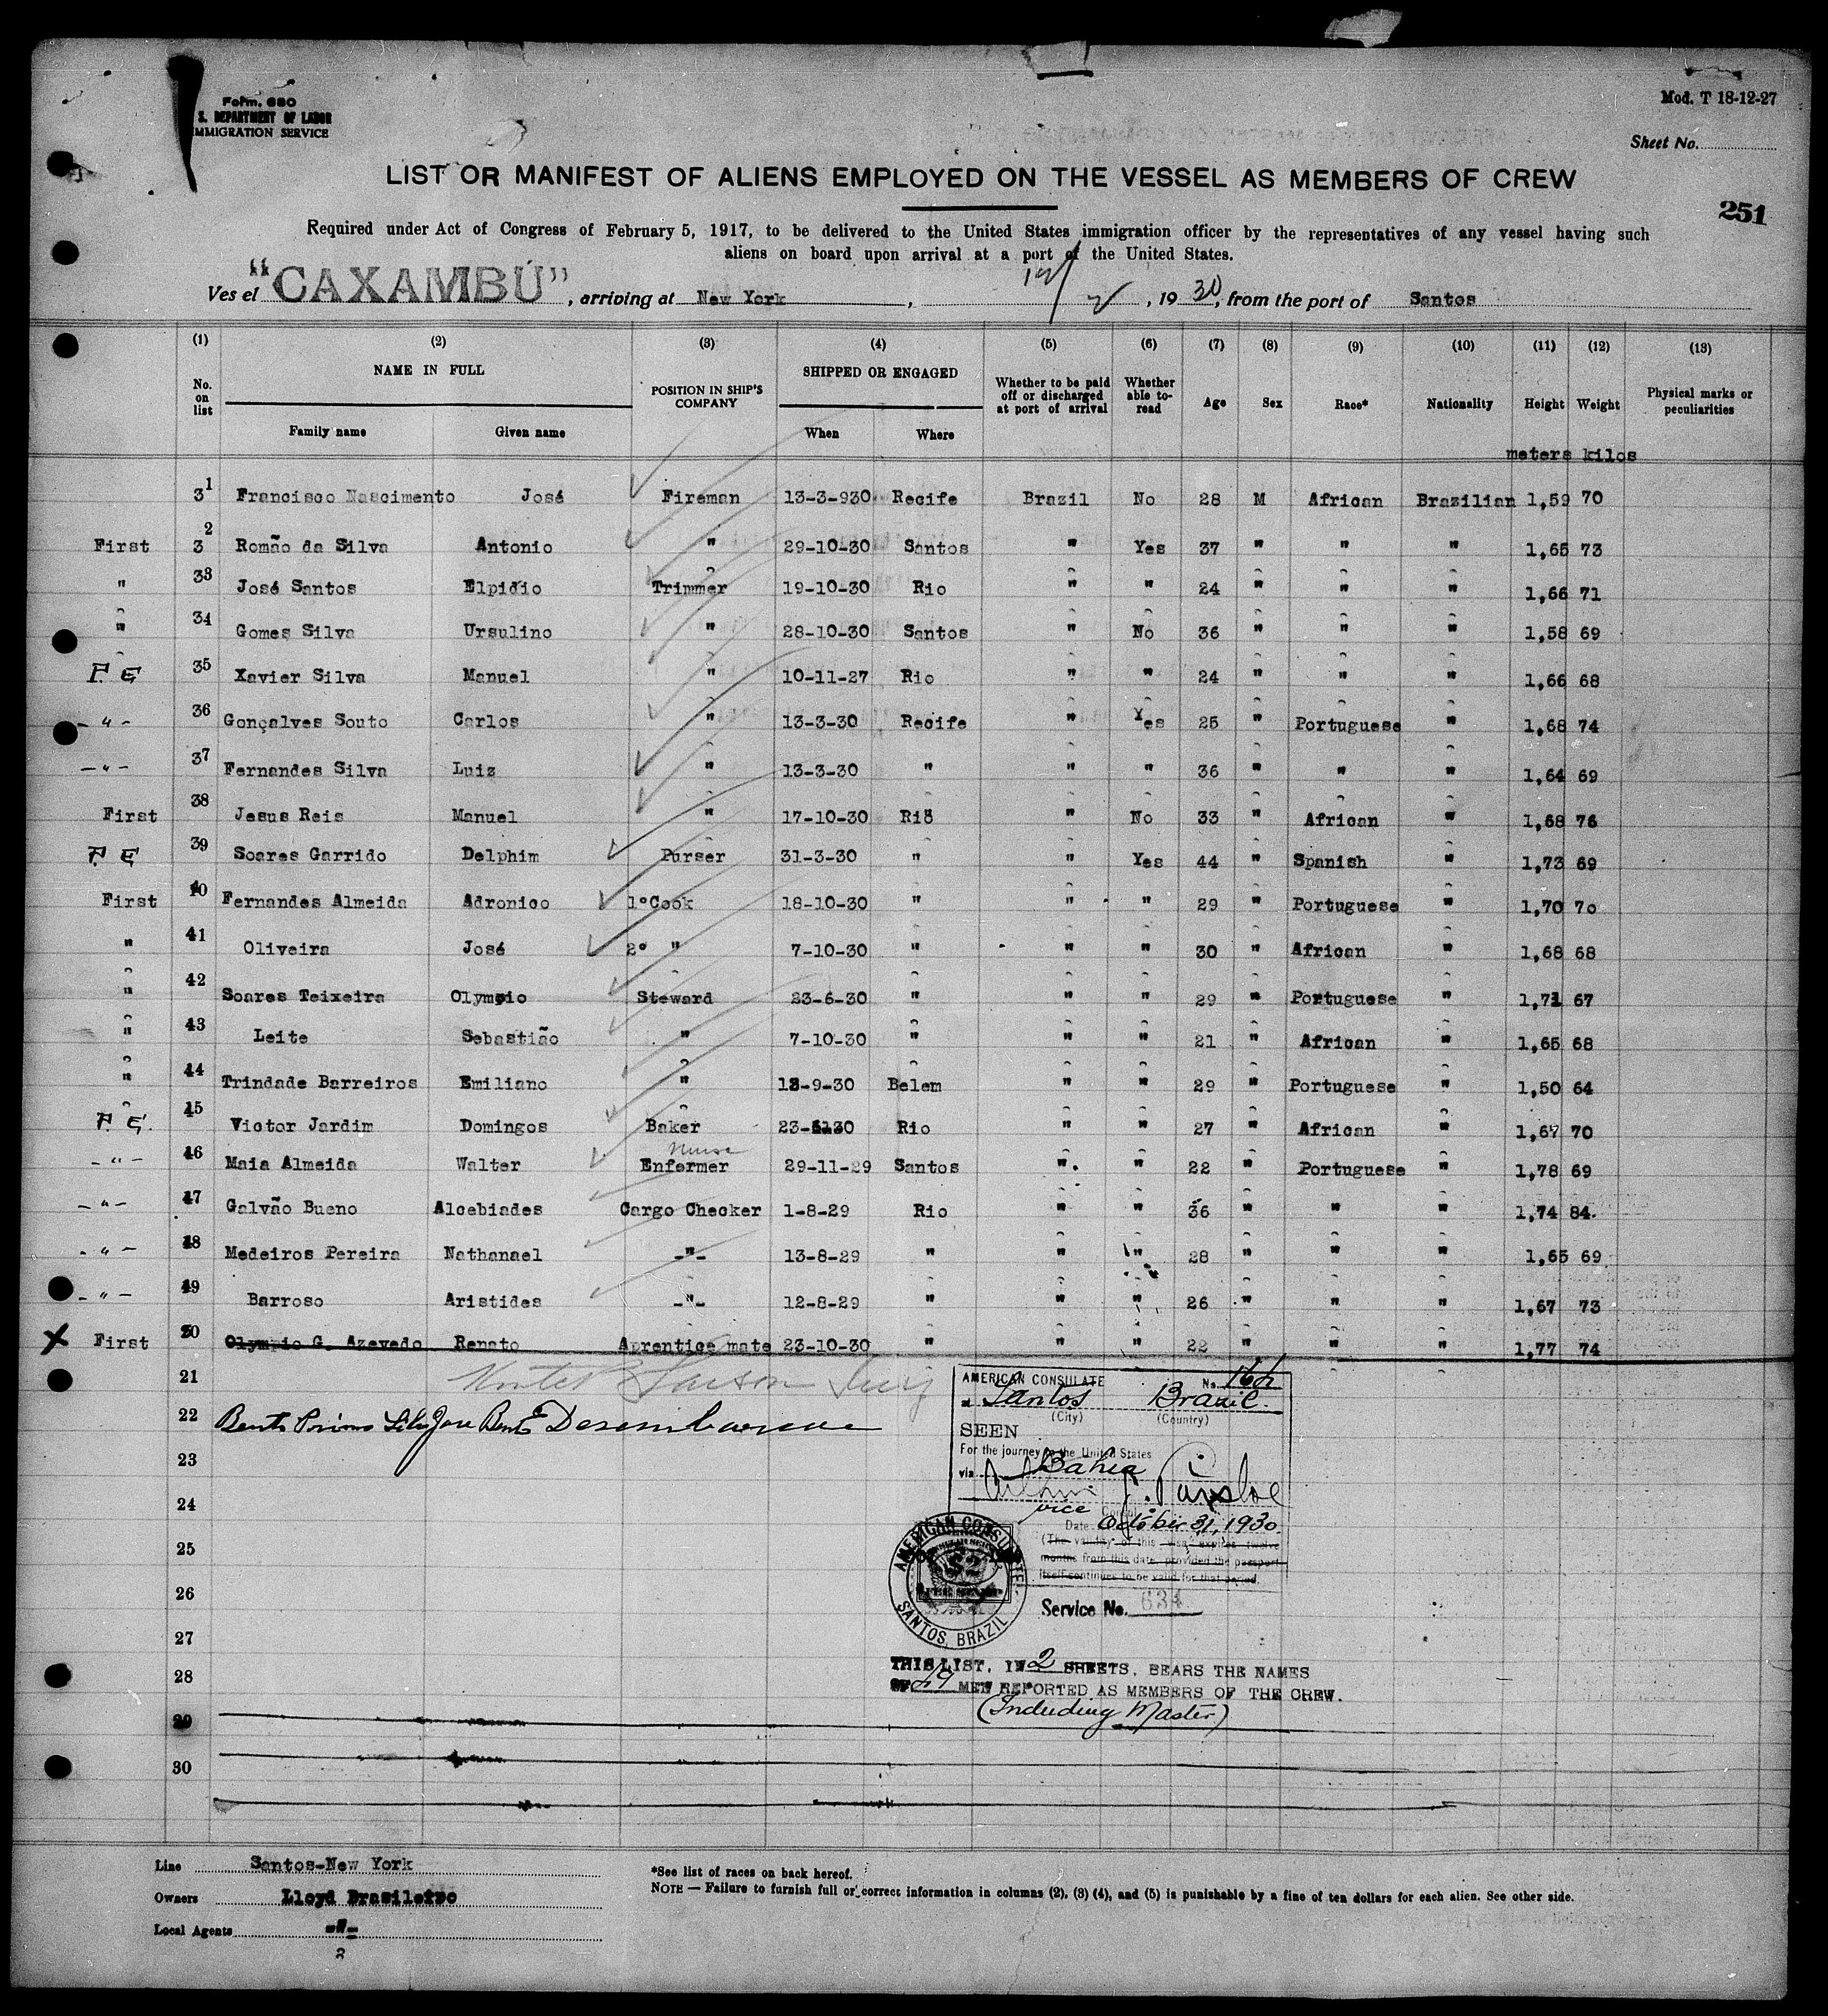 Form. 680
S. DEPARTMENT OF LABOR
IMMIGRATION SERVICE
Mod. T 18-12-27
Sheet No.
LIST OR MANIFEST OF ALIENS EMPLOYED ON THE VESSEL AS MEMBERS OF CREW
251
Required under Act of Congress of February 5, 1917, to be delivered to the United States immigration officer by the representatives of any vessel having such
aliens on board upon arrival at a port of the United States.
Ves el "CAXAMBÚ", arriving at New York, , 1930, from the port of Santos
(1) (2) (3) (4) (5) (6) (7) (8) (9) (10) (11) (12) (13)
No. on list NAME IN FULL Family name Given name POSITION IN SHIP'S COMPANY SHIPPED OR ENGAGED When Where Whether to be paid off or discharged at port of arrival Whether able to- read Age Sex Race* Nationality Height Weight Physical marks or peculiarities
meters kilos
31 Francisco Nascimento José Fireman 13-3-930 Recife Brazil No 28 M African Brazilian 1,59 70
First 32 Romão da Silva Antonio " 29-10-30 Santos " Yes 37 " " " 1,65 73
" 33 José Santos Elpidio Trimmer 19-10-30 Rio " " 24 " " " 1,66 71
" 34 Gomes Silva Ursulino " 28-10-30 Santos " No 36 " " " 1,58 69
P. E 35 Xavier Silva Manuel " 10-11-27 Rio " " 24 " " " 1,66 68
- " - 36 Gonçalves Souto Carlos " 13-3-30 Recife " Yes 25 " Portuguese " 1,68 74
- " - 37 Fernandes Silva Luiz " 13-3-30 " " " 36 " " " 1,64 69
First 38 Jesus Reis Manuel " 17-10-30 Rio " No 33 " African " 1,68 76
P. E 39 Soares Garrido Delphim Purser 31-3-30 " " Yes 44 " Spanish " 1,73 69
First 40 Fernandes Almeida Adronico 1º Cook 18-10-30 " " " 29 " Portuguese " 1,70 70
" 41 Oliveira José 2º " 7-10-30 " " " 30 " African " 1,68 68
" 42 Soares Teixeira Olympio Steward 23-6-30 " " " 29 " Portuguese " 1,71 67
" 43 Leite Sebastião " 7-10-30 " " " 21 " African " 1,65 68
" 44 Trindade Barreiros Emiliano " -9-30 Belem " " 29 " Portuguese " 1,50 64
P. E. 45 Victor Jardim Domingos Baker Rio " " 27 " African " 70
- " - 46 Maia Almeida Walter Enfermer Nurse 29-11-29 Santos " " 22 " Portuguese " 1,78 69
- " - 47 Galvão Bueno Alcebiades Cargo Checker 1-8-29 Rio " " 36 " " " 1,74 84.
- " - 48 Medeiros Pereira Nathanael -"- 13-8-29 " " " 28 " " " 1,65 69
- " - 49 Barroso Aristides -"- 12-8-29 " " " 26 " " " 1,67 73
X First 50 Olympio G. Azevedo Renato Aprentice mate 23-10-30 " " " 22 " " " 1,77 74
21
22 Desembarcou
23
24
25
26
27
28
29
30
AMERICAN CONSULATE No.
at Santos Brazil.
(City) (Country)
SEEN
For the journey to the United States
via Bahia
vice Consul
Date October 31, 1930.
(The validity of this visa expires twelve
months from this date, provided the passport
itself continues to be valid for that period.
Service No. 634
AMERICAN CONSULATE
$2
SANTOS, BRAZIL
THIS LIST, IN 2 SHEETS, BEARS THE NAMES
OF 49 MEN REPORTED AS MEMBERS OF THE CREW.
(Including Master)
Line Santos-New York
Owners Lloyd Brasileiro
Local Agents -"-
*See list of races on back hereof.
NOTE — Failure to furnish full or correct information in columns (2), (3) (4), and (5) is punishable by a fine of ten dollars for each alien. See other side.